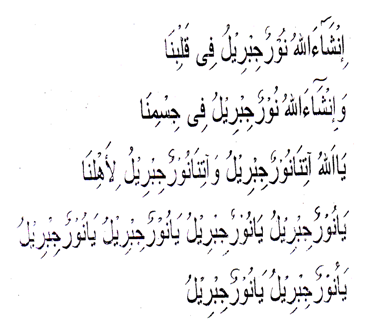 اِنْشَآءَاللهُ نُوْرُجِبْرِيْلُ فِى قَلْبِنَا
وَاِنْشَآءَاللهُ نُوْرُجِبْرِيْلُ فِى جِسْمِنَا
يَااَللهُ آتِنَانُوْرُجِبْرِيْلُ وَآتِنَانُوْرُجِبْرِيْلُ لِاَهْلِنَا
يَانُوْرُجِبْرِيْلُ يَانُوْرُجِبْرِيْلُ يَانُوْرُجِبْرِيْلُ يَانُوْرُجِبْرِيْلُ
يَانُوْرُجِبْرِيْلُ يَانُوْرُجِبْرِيْلُ